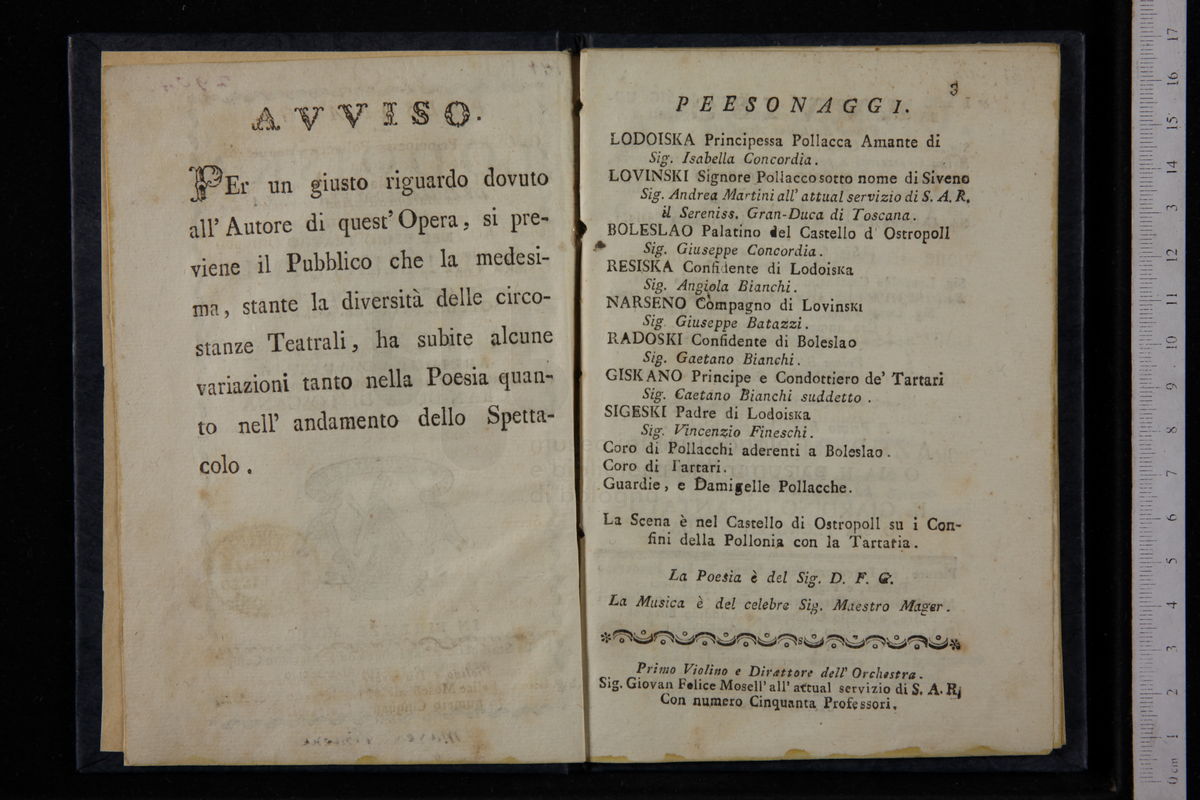 AVVISO.
PEr un giusto riguardo dovuto
all' Autore di quest' Opera, si pre-
viene il Pubblico che la medesi-
ma, stante la diversità delle circo-
stanze Teatrali, ha subite alcune
variazioni tanto nella Poesia quan-
to nell' andamento dello Spetta-
colo.
3
PEESONAGGI.
LODOISKA Principessa Pollacca Amante di
Sig. Isabella Concordia.
LOVINSKI Signore Pollacco sotto nome di Siveno
Sig. Andrea Martini all' attual servizio di S. A. R.
il Sereniss. Gran-Duca di Toscana.
BOLESLAO Palatino del Castello d' Ostropoll
Sig. Giuseppe Concordia.
RESISKA Confidente di Lodoiska
Sig. Angiola Bianchi.
NARSENO Còmpagno di Lovinski
Sig. Giuseppe Batazzi.
RADOSKI Confidente di Boleslao
Sig. Gaetano Bianchi.
GISKANO Principe e Condottiero de' Tartari
Sig. Caetano Bianchi suddetto.
SIGESKI Padre di Lodoiska
Sig. Vincenzio Fineschi.
Coro di Pollacchi aderenti a Boleslao.
Coro di Tartari.
Guardie, e Damigelle Pollacche.
La Scena è nel Castello di Ostropoll su i Con-
fini della Pollonia con la Tartaria.
La Poesia è del Sig. D. F. G.
La Musica è del celebre Sig. Maestro Mager.
Primo Violino e Direttore dell' Orchestra.
Sig. Giovan Felice Mosell' all' attual servizio di S. A. R.
Con numero Cinquanta Professori.
0 cm 1 2 3 4 5 6 7 8 9 10 11 12 13 14 15 16 17